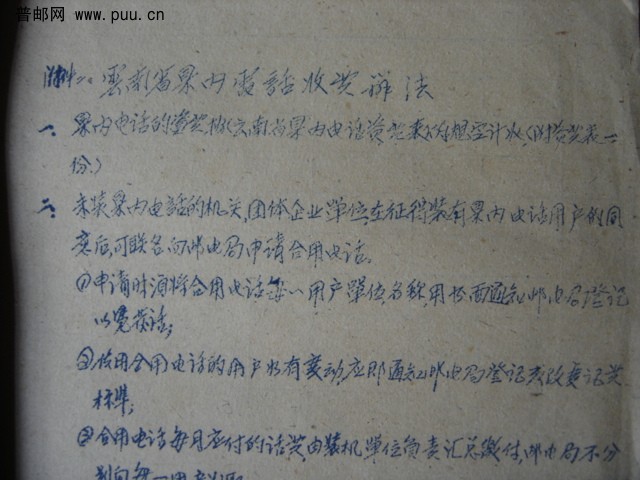 普邮网 www.puu.cn
附件二、云南省县内电話收费辦法
一、县内电话的资费,按《云南省县内电话资费表》的规定计收、(附资费表一
份)
二、未装县内电話的机关,团体企业单位,在征得装有县内电话用户的同
意后,可联名向邮电局申请合用电话。
①申请时须将合用电话每一用户单位,名称,用书面通知邮电局登记
以免拨话;
②使用合用电话的用户如有变动,应即通知邮电局登记并改变记费
标準;
③合用电话每月应付的话费,由装机单位负责汇总缴付,邮电局不分
别向每一用户